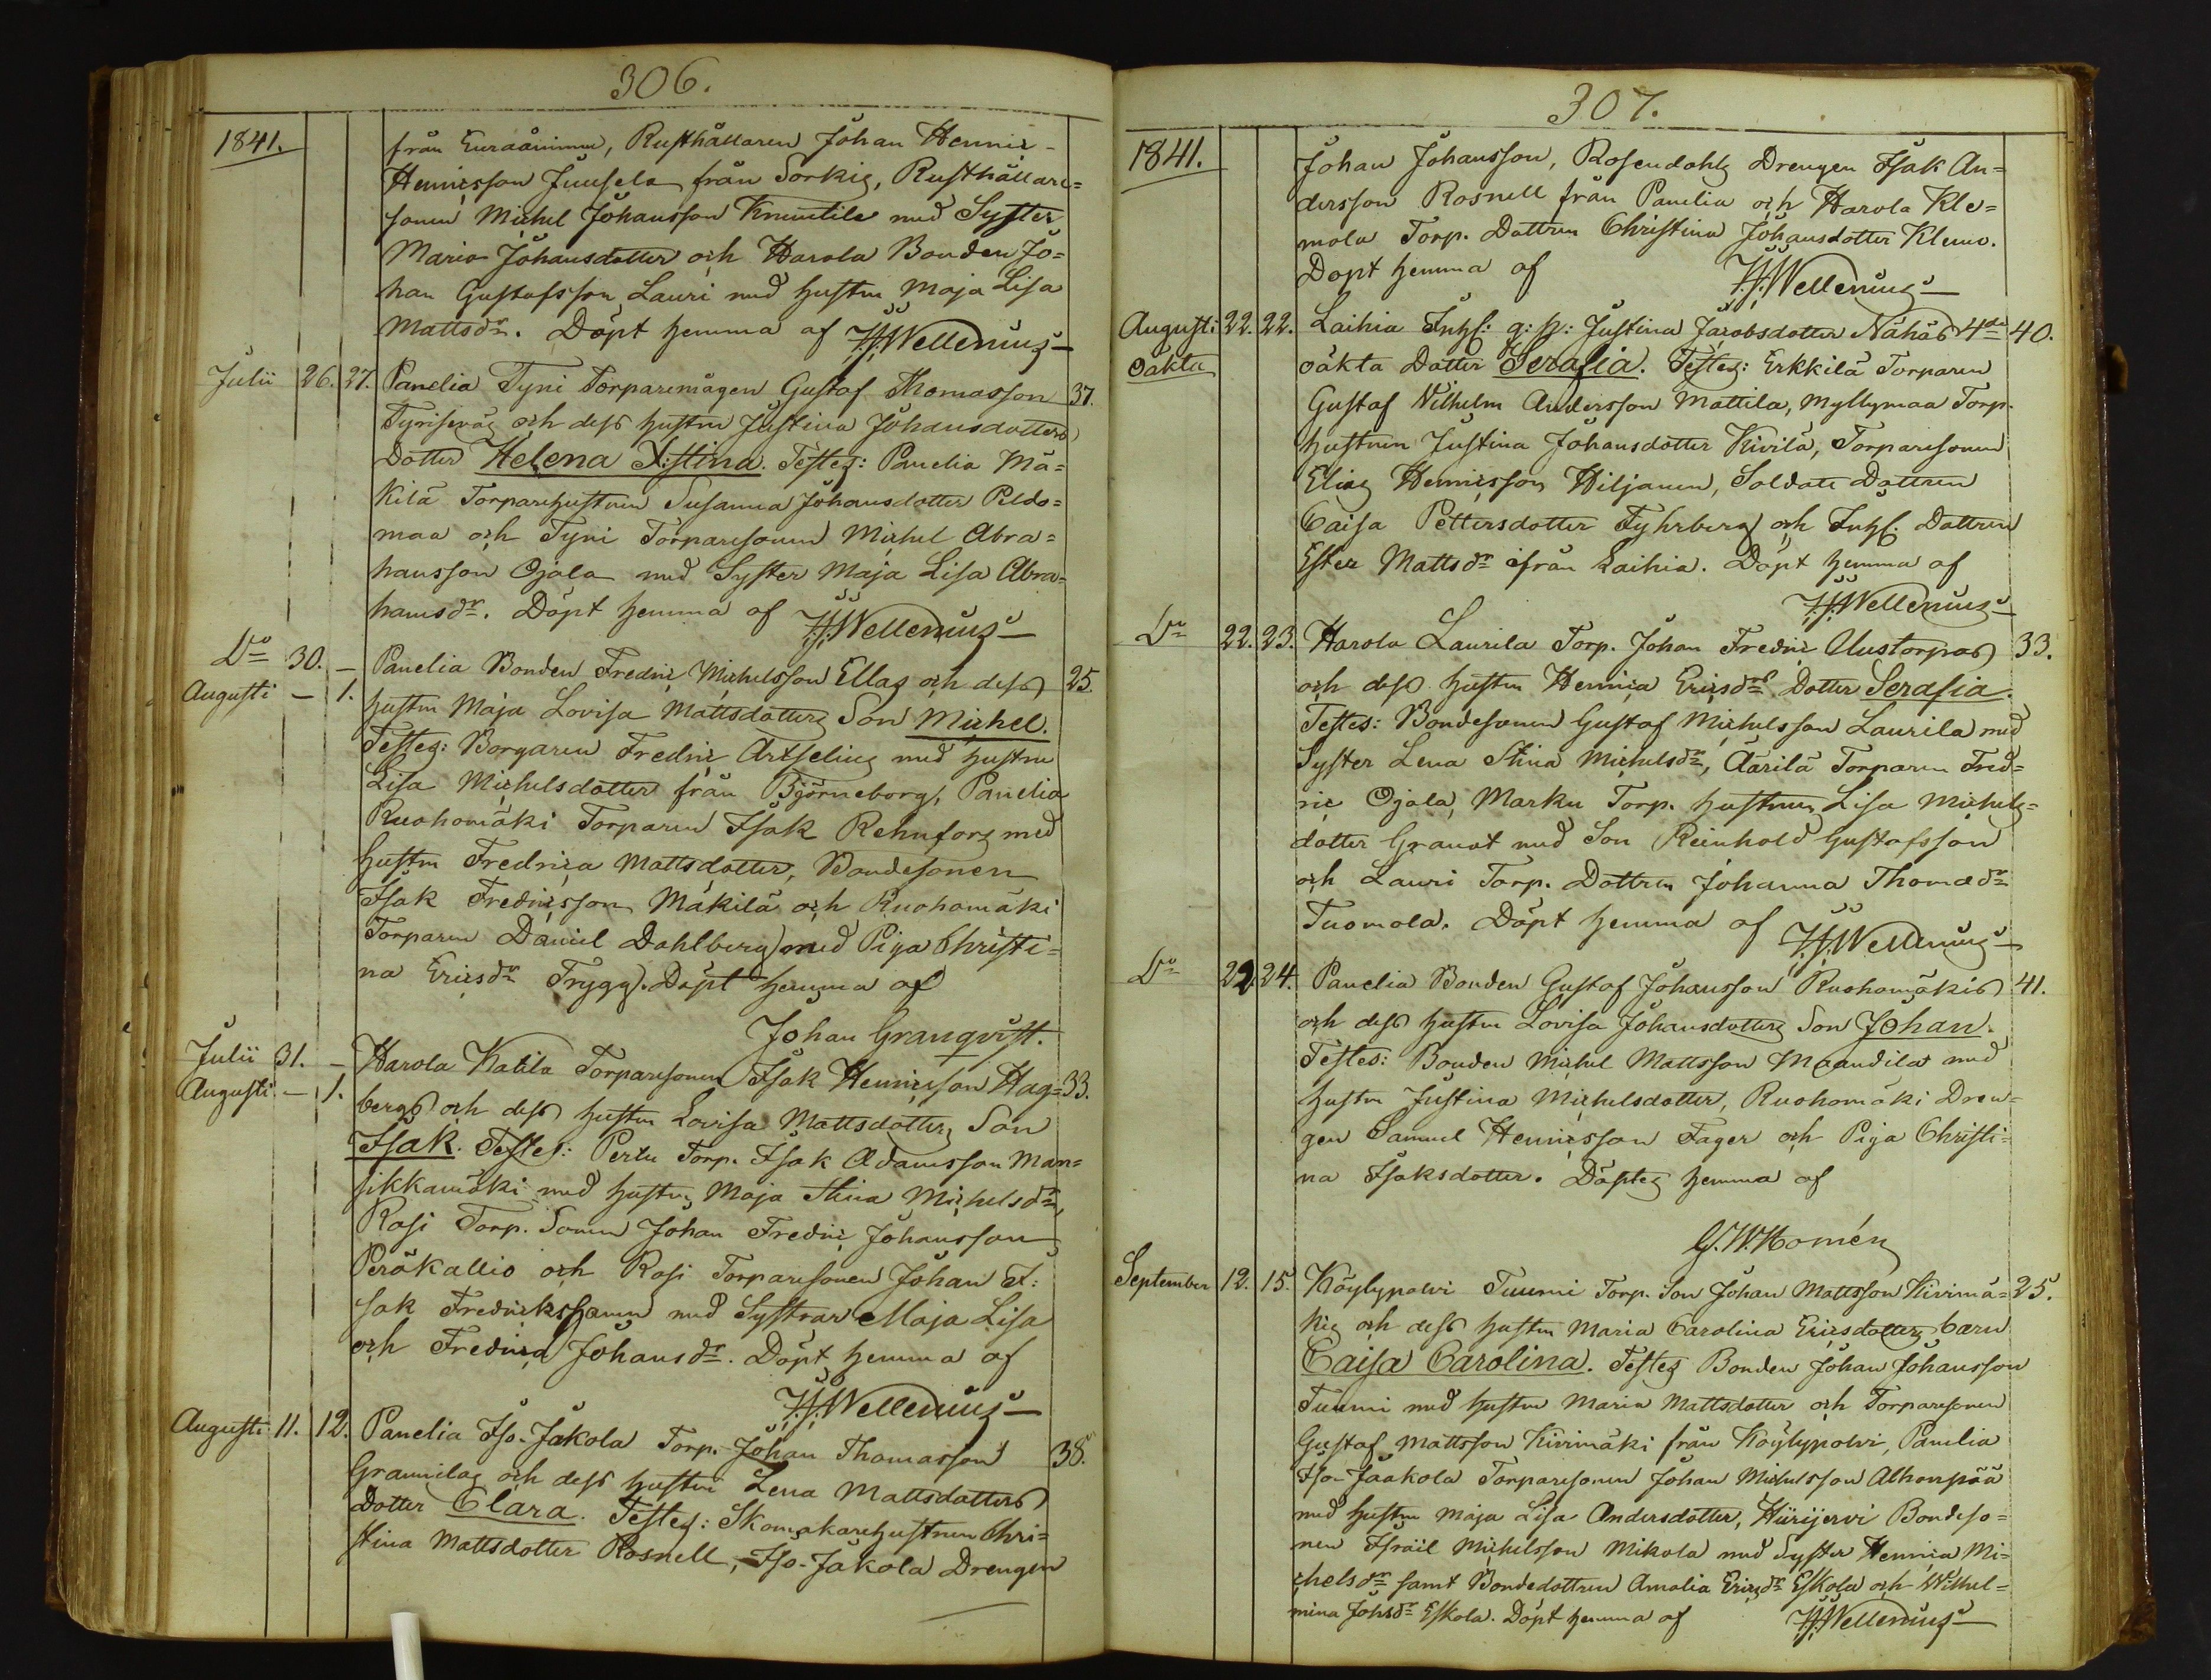 306.
1841.
från Euraåminne, Rusthållaren Johan Henric
Henricsson Juusela från Sorkis, Rusthållare=
sonen Michel Johansson Knuutila med Syster
Maria Johansdotter och Harola Bonden Jo=
han Gustafsson Lauri med hustru Maja Lisa
Mattsdr. Döpt hemma af H.J.Wellenius
Julii 26. 27. Panelia Tyni Torparemågen Gustaf Thomasson 37.
och dess hustru Justina Johansdotters
Dotter Helena X:stina. Testes: Panelia Mä=
kilä Torparehustrun Susanna Johansdotter Peldo=
maa och Tyni Torparesonen Michel Abra=
hamsson Ojala med Syster Maja Lisa Abra=
hamsdr. Döpt hemma af H.J.Wellenius
Do 30. — Panelia Bonden Fredric Michelsson Ellas och dess 25.
Augusti — 1. hustru Maja Lovisa Mattsdotters Son Michel.
Testes: Borgaren Fredric Artselius med hustru
Lisa Michelsdotter från Björneborg, Panelia
Ruohomäki Torparen Isak Rehnfors med
hustru Fredrica Mattsdotter, Bondesonen
Isak Fredricsson Mäkilä och Ruohomäki
Torparen Daniel Dahlberg med Piga Christi=
na Ericsdr Trygg. Döpt hemma af
Johan Granqvist.
Julii 31. — Harola Katila Torparesonen Isak Henricsson Hag= 33.
Augusti — 1. bergs och dess hustru Lovisa Mattsdotters Son
Isak. Testes: Pertu Torp. Isak Adamsson Man=
sikkamäki med hustru Maja Stina Michelsdr,
Rosi Torp. Sonen Johan Fredric Johansson
Peräkallio och Rosi Torparesonen Johan I=
sak Fredrickshamn med Systrar Maja Lisa
och Fredrica Johansdr. Döpt hemma af
H.J.Wellenius
Augusti 11. 12. Panelia Iso-Jakola Torp. Johan Thomasson 38.
Grannilas och dess hustru Lena Mattsdotters
Dotter Clara. Testes: Skomakarehustrun Chri=
stina Mattsdotter Rosnell, Iso-Jakola Drengen
307.
1841.
Johan Johansson, Rosendahls Drengen Isak An=
dersson Rosnell från Panelia och Harola Kle=
mola Torp. Dottren Christina Johansdotter Klemo.
Döpt hemma af H.J.Wellenius
Augusti 22. 22. Laihia Inhs: q: p: Justina Jacobsdotter Nähäs 4de 40.
oäkta oäkta Dotter Serafia. Testes: Erkkilä Torparen
Gustaf Wilhelm Andersson Mattila, Myllymaa Torp.
hustrun Justina Johansdotter Kivilä, Torparesonen
Elias Henricsson Hiljanen, Soldate Dottren
Caisa Pettersdotter Fyhrberg och Inhs. Dottren
Ester Mattsdr ifrån Laihia. Döpt hemma af
H.J.Wellenius
Do 22. 23. Harola Laurila Torp. Johan Fredric Uustorpas 33.
och dess hustru Henrica Ericsdrs Dotter Serafia.
Testes: Bondesonen Gustaf Michelsson Laurila med
Syster Lena Stina Michelsdr, Äärilä Torparen Fred=
ric Ojala, Marku Torp. hustrun Lisa Michels=
dotter Granat med Son Reinhold Gustafsson
och Lauri Torp. Dottren Johanna Thomædr
Tuomola. Döpt hemma af H.J.Wellenius
Do 22. 24. Panelia Bonden Gustaf Johansson Ruohomäkis 41.
och dess hustru Lovisa Johansdotters Son Johan.
Testes: Bonden Michel Mattsson Maandila med
hustru Justina Michelsdotter, Ruohomäki Dren=
gen Samuel Henricsson Fager och Piga Christi=
na Isaksdotter. Döptes hemma af
G.W.Homén
September 12. 15. Köylypolvi Tuumi Torp. Son Johan Mattsson Kivimä= 25.
kis och dess hustru Maria Carolina Ericsdotters barn
Caisa Carolina. Testes Bonden Johan Johansson
Tuumi med hustru Maria Mattsdotter och Torparesonen
Gustaf Mattsson Kivimäki från Köylypolvi, Panelia
Iso-Jaakola Torparesonen Johan Michelsson Alhonpää
med hustru Maja Lisa Andersdotter, Hiirijervi Bondeso=
nen Israil Michelsson Mikola med Syster Henrica Mi=
chelsdr samt Bondedottren Amalia Ericsdr Eskola och Wilhel=
mina Johsdr Eskola. Döpt hemma af H.J.Wellenius